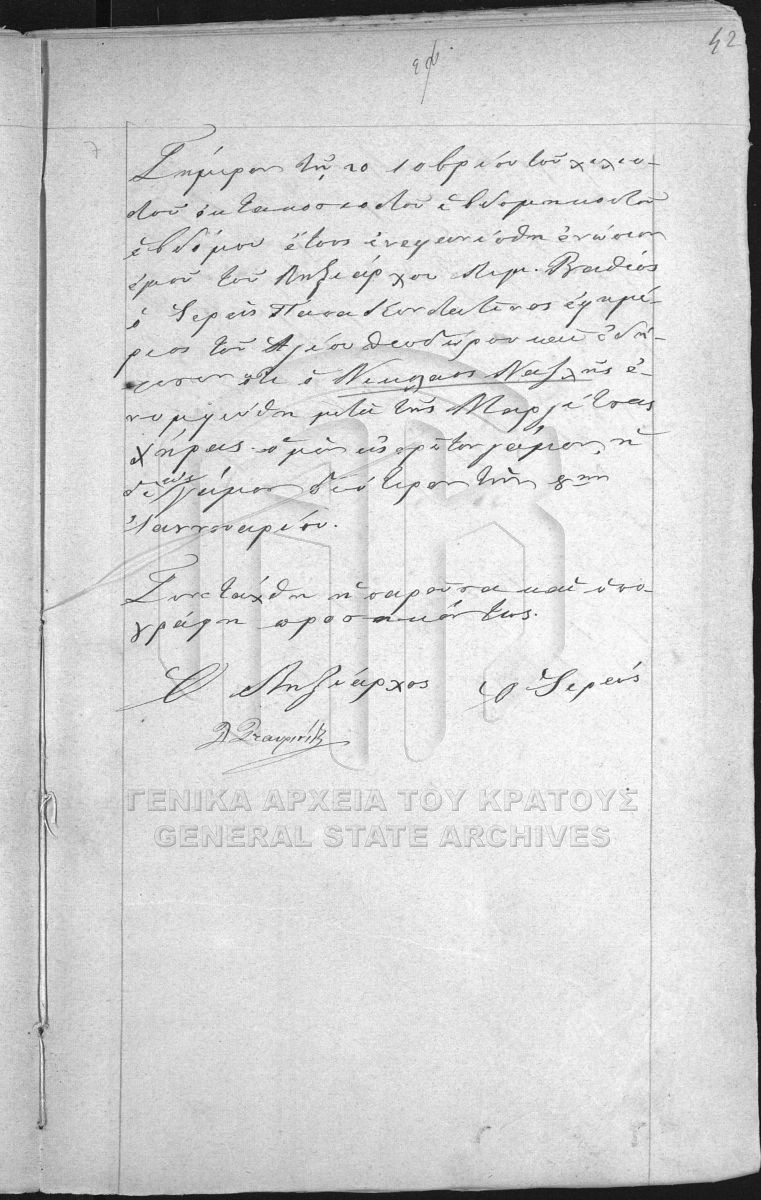 42
Σήμερον τῇ 20 10βρίου τοῦ χιλιο-
στοῦ ὀκτακοσιοστοῦ ἑβδομηκοστοῦ
ἑβδόμου ἔτους ἐνεφανίσθη ἐνώπιον
ἐμοῦ τοῦ Ληξιάρχου Λιμ. Βαθέος
ὁ Ἱερεὺς Παπα Κονσταντῖνος ἐφημέ-
ριος τοῦ Ἁγίου Θεοδώρου καὶ ἐδή-
λωσεν ὅτι ὁ Νικόλαος Ναζλῆς ἐ-
νυμφεύθη μετὰ τῆς Μαργέτσας
χήρας ὁ μὲν εἰς πρῶτον γάμον, ἡ
δὲ εἰς γάμον δεύτερον τὴν 8ην
Ἰαννουαρίου.
Συνετάχθη ἡ παροῦσα καὶ ὑπο-
γράφη προσηκόντως.
Ὁ Ληξίαρχος Ὁ Ἱερεύς
ΓΕΝΙΚΑ ΑΡΧΕΙΑ ΤΟΥ ΚΡΑΤΟΥΣ
GENERAL STATE ARCHIVES